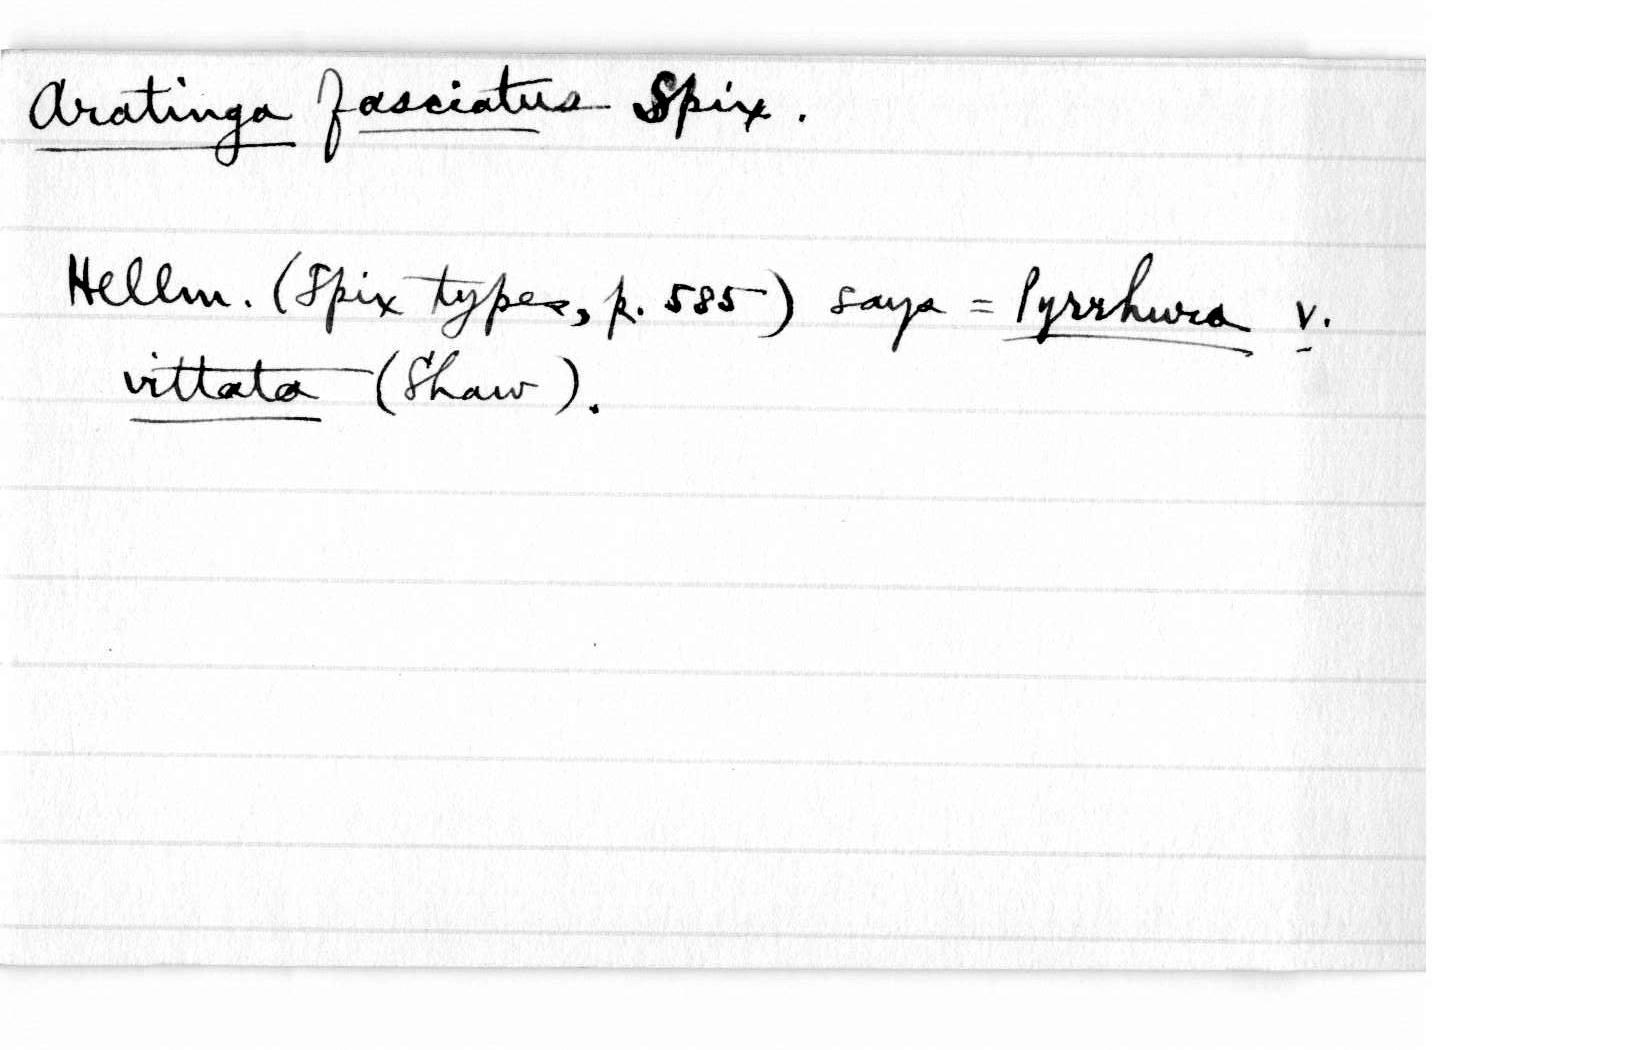 Aratinga fasciatus Spix.
Hellm. (Spix types, p. 585) says = Pyrrhura v.
vittata (Shaw).